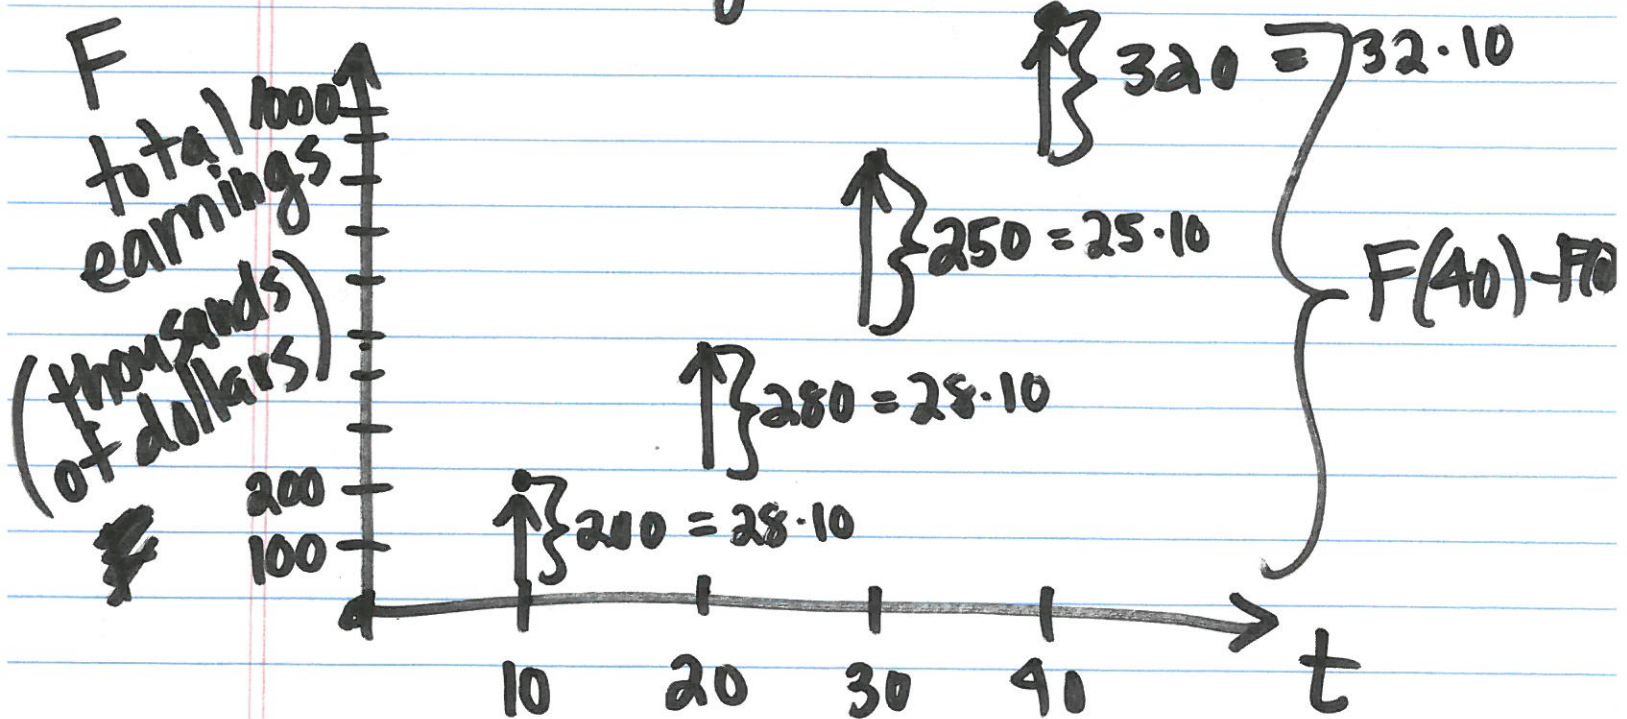 F
total
earnings
(thousands
of dollars)
1000
200
100
320 = 32·10
250 = 25·10
280 = 28·10
= 28·10
F(40)-
10 20 30 40
t